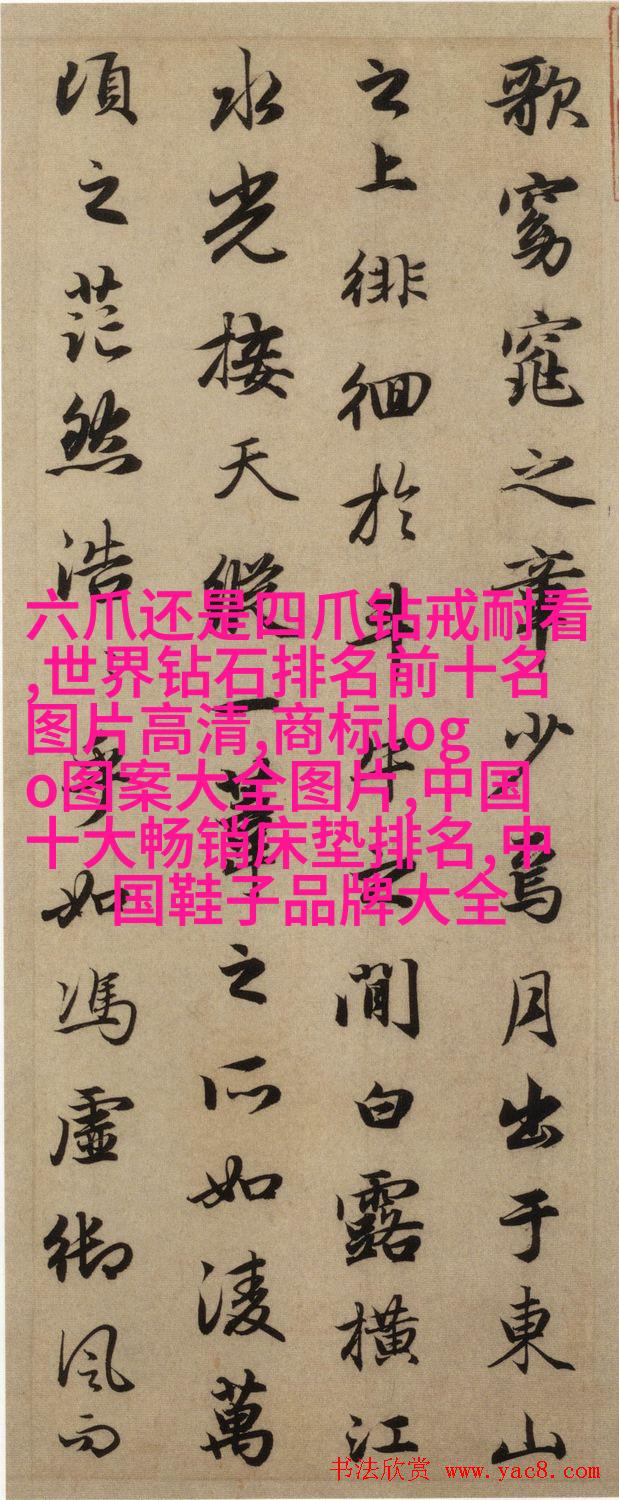 歌窈窕之章少焉月出于東山
之上徘徊於斗牛之間白露橫江
水光接天縱一葦之所如淩萬
頃之茫然浩〻乎如馮虛御風而
六爪还是四爪钻戒耐看
,世界钻石排名前十名
图片高清,商标log
o图案大全图片,中国
十大畅销床垫排名,中
国鞋子品牌大全
书法欣赏 www.yac8.com